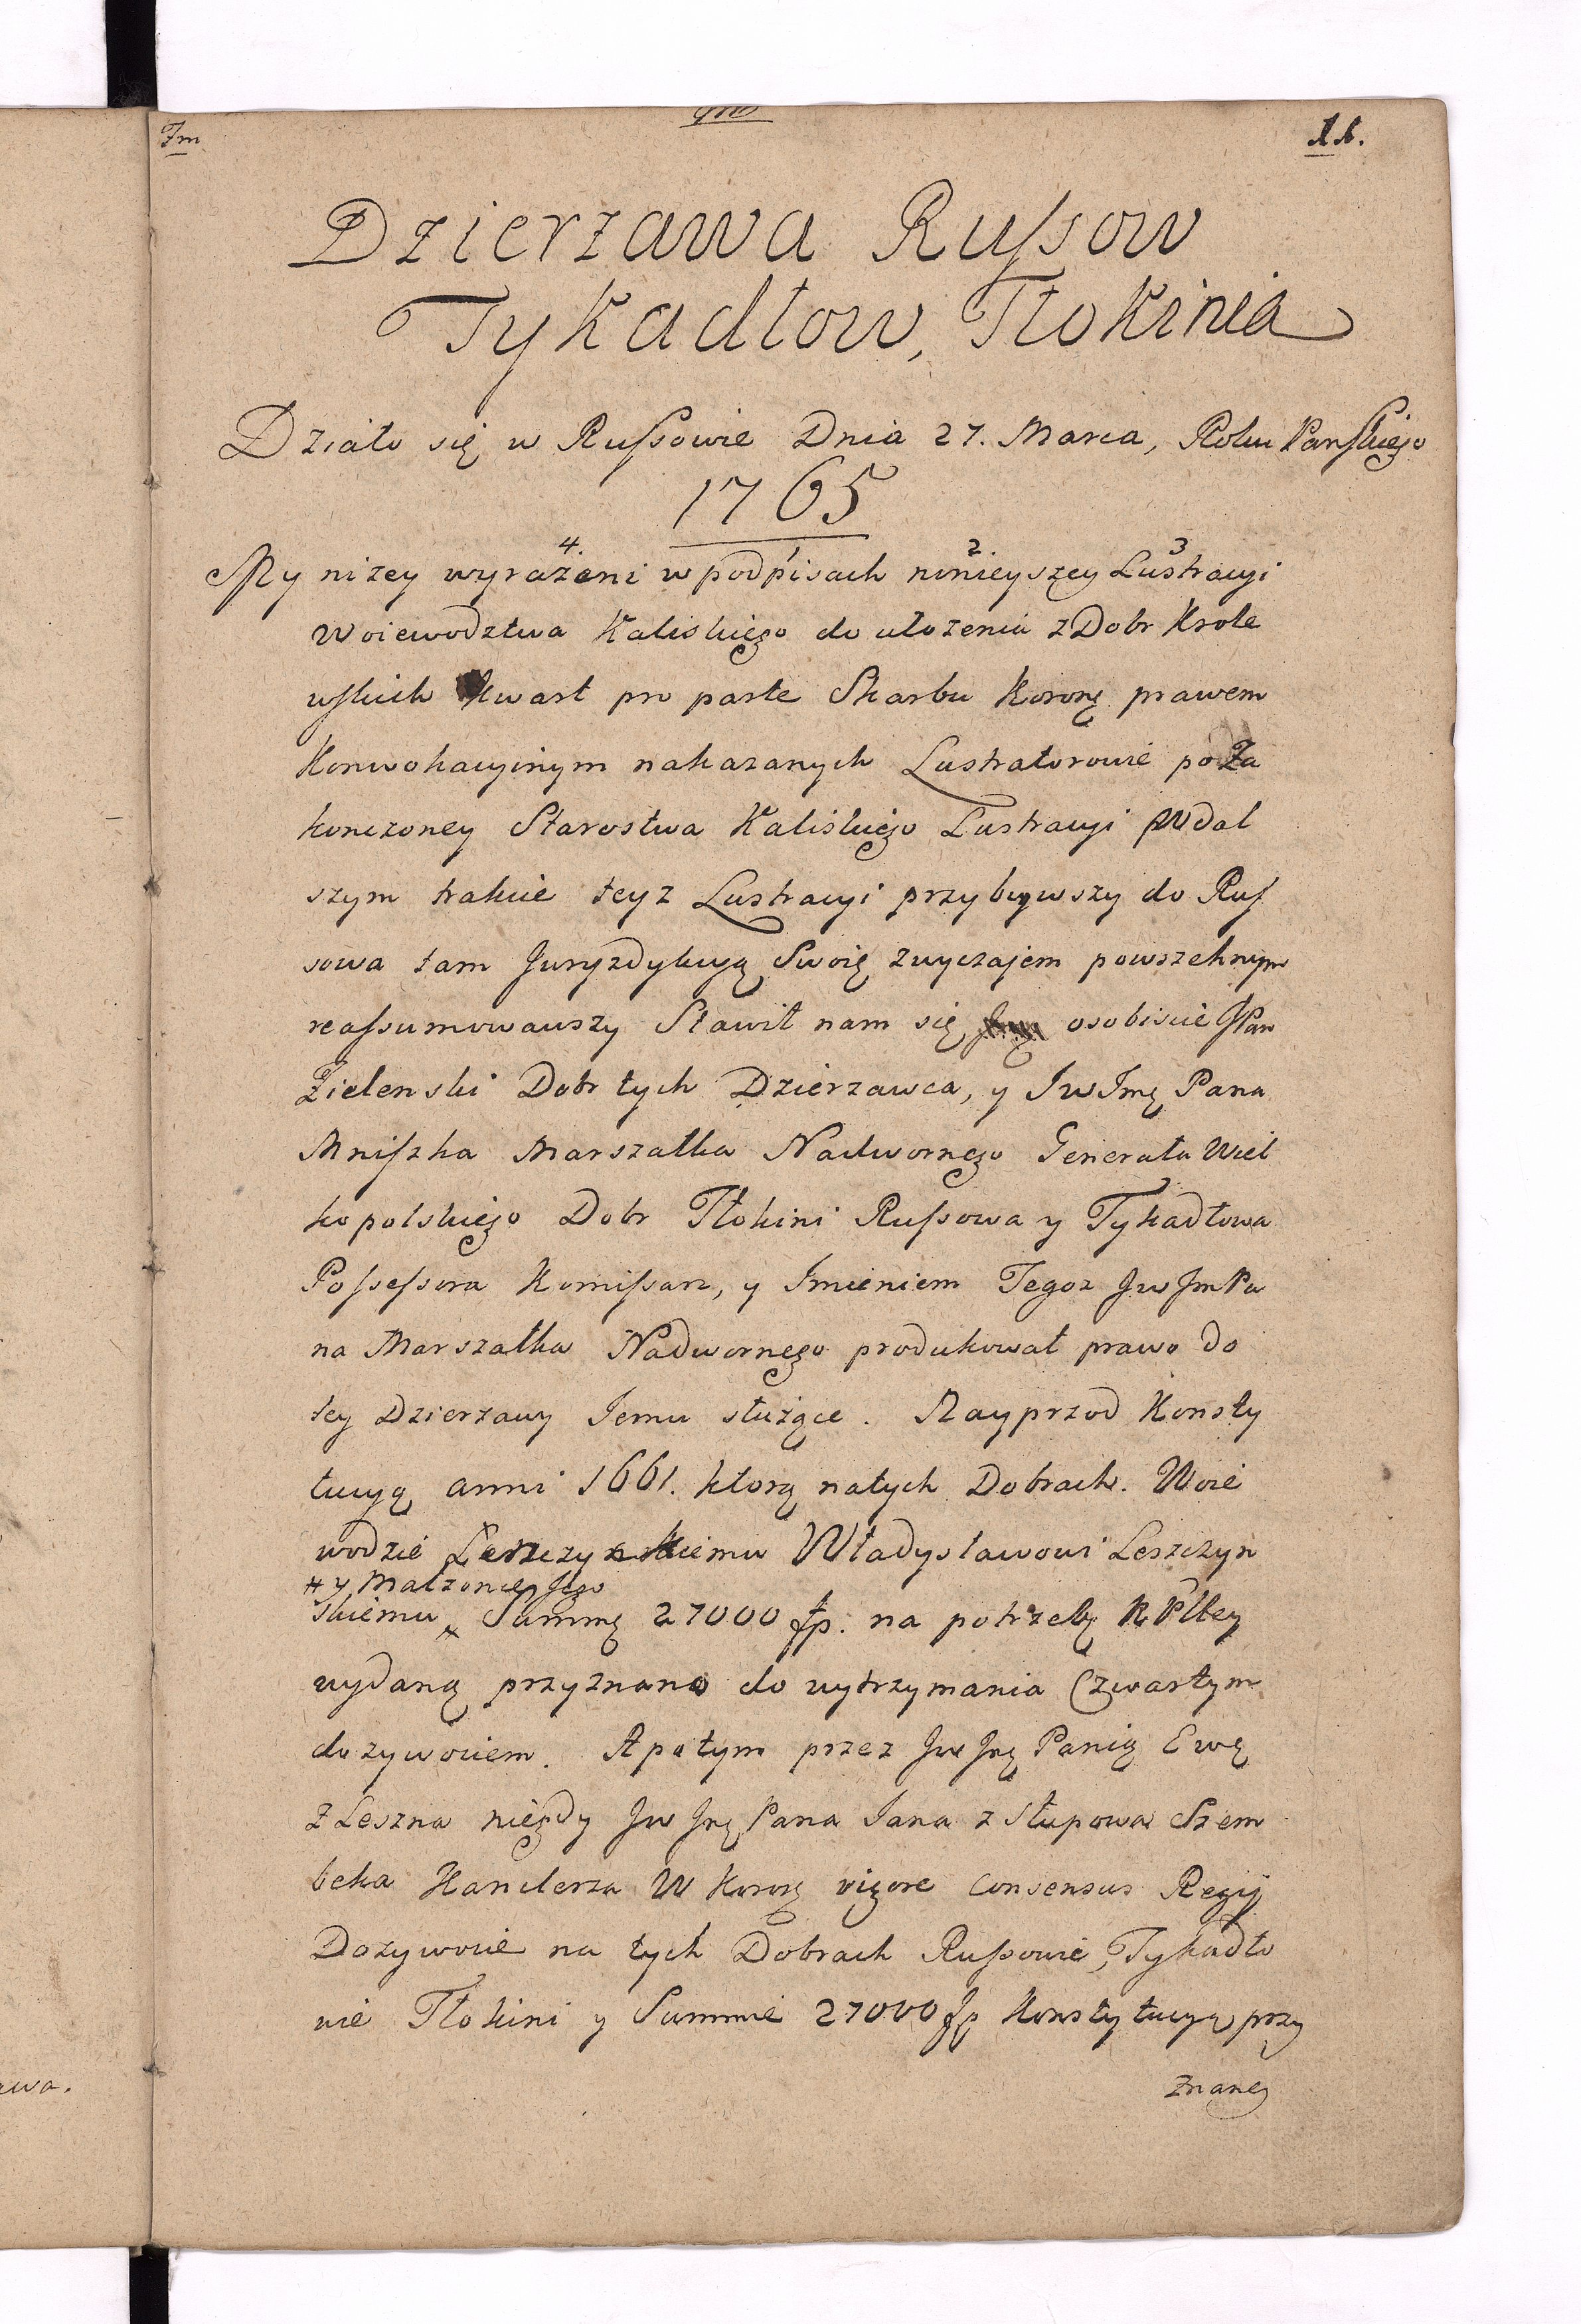 Dzierzawa Russow
Tykadłow, Tłokinia
Działo się w Russowie Dnia 27. Marca, Roku Panskiego
1765
4. 1 2 3
My nizey wyrażeni w podpisach ninieyszey Lustracyi
Woiewodztwa Kaliskiego do ułozenia z Dobr Krole
wskich Kwart pro parte Skarbu Koronę prawem
Konwokacyinym nakazanych Lustratorowie po Za
konczoney Starostwa Kaliskiego Lustracyi W dal
szym trakcie teyz Lustracyi przybywszy do Rus
sowa tam Juryzdykcyą Swoię zwyczajem powszehnym
reassumowawszy Stawił nam się osobiscie JPan
Zielenski Dobr tych Dzierzawca, y Jw Jmę Pana
Mniszka Marszałka Nadwornego Generała Wiel
kopolskiego Dobr Tłokini Russowa y Tykadłowa
Possessora Komissarz, y Imieniem Tegoz Jw Jm Pa
na Marszałka Nadwornego produkował prawo do
tey Dzierzawy Iemu służące. Nayprzod Konsty
tucyą anni 1661. ktorą natych Dobrach. Woie
wodzie Leszczynskiemu Władysławowi Leszczyn
# y Małzonce Jego
skiemu # Summę 27000 fp. na potrzeby RPltey
wydaną przyznano do wytrzymania Czwartym
dozywociem. A potym przez Jw Jmę Panią Ewę
z Leszna niegdy Jw Jmę Pana Jana z Słupowa Szem
beka Kanclerza W Koronę vigore Consensus Regij
Dozywocie na tych Dobrach Russowie, Tykadło
wie Tłokini y Summie 27000 fp Konstytucyą przy
znaney